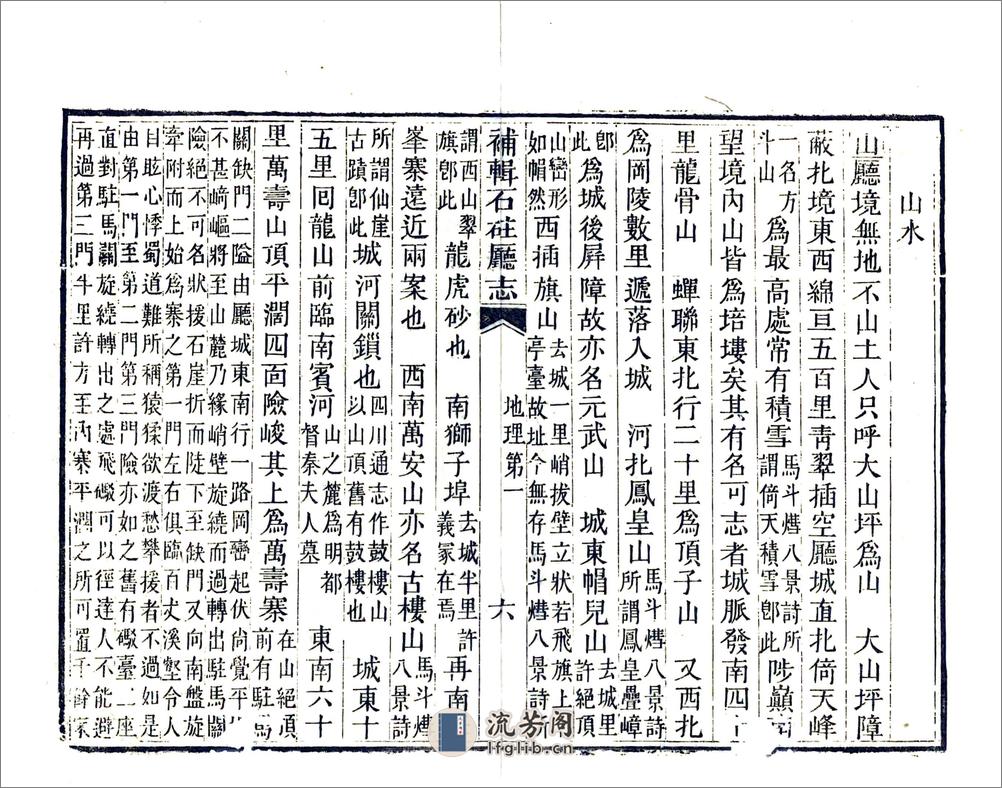 山水
山廳境無地不山土人只呼大山坪爲山　大山坪障
蔽北境東西綿亘五百里靑翠插空廳城直北倚天峰
一名方斗山爲最高處常有積雪馬斗𤏡八景詩所謂倚天積雪卽此陟巔
望境內山皆爲培塿矣其有名可志者城脈發南四十
里龍骨山　蟬聯東北行二十里爲頂子山　又西北
爲岡陵數里遞落入城　河北鳳皇山馬斗𤏡八景詩所謂鳳皇疊嶂
卽此爲城後屏障故亦名元武山　城東㡌兒山去城里許絕頂
山巒形如帽然西插旗山去城一里峭拔壁立狀若飛旗上亭臺故址今無存馬斗𤏡八景詩
補輯石砫廳志　地理第一　六
謂西山翠旗卽此龍虎砂也　南獅子埠去城半里許義冢在焉再南
峯寨遠近兩案也　西南萬安山亦名古樓山馬斗𤏡八景詩
所謂仙崖古蹟卽此城河關鎖也四川通志作鼓樓山以山頂舊有鼓樓也　城東十
五里回龍山前臨南賓河山之麓爲明都督秦夫人墓　東南六十
里萬壽山頂平濶四面險峻其上爲萬壽寨在山絕頂前有駐馬
關缺門二隘由廳城東南行一路岡巒起伏尙覺平
不甚﨑嶇將至山麓乃緣峭壁旋繞而過轉出駐馬關
險絕不可名狀援石崖折而陡下至缺門又向南盤旋
牽附而上始爲寨之第一門左右俱臨百丈溪壑令人
目眩心悸蜀道難所稱猿猱欲渡愁攀援者不過如是
由第一門至第二門第三門險亦如之舊有礮臺二座
直對駐馬關旋繞轉出之處飛礮可以徑達人不能避
再過第三門半里許方至內寨平濶之所可置千餘家
流芳阁
lfglib.cn